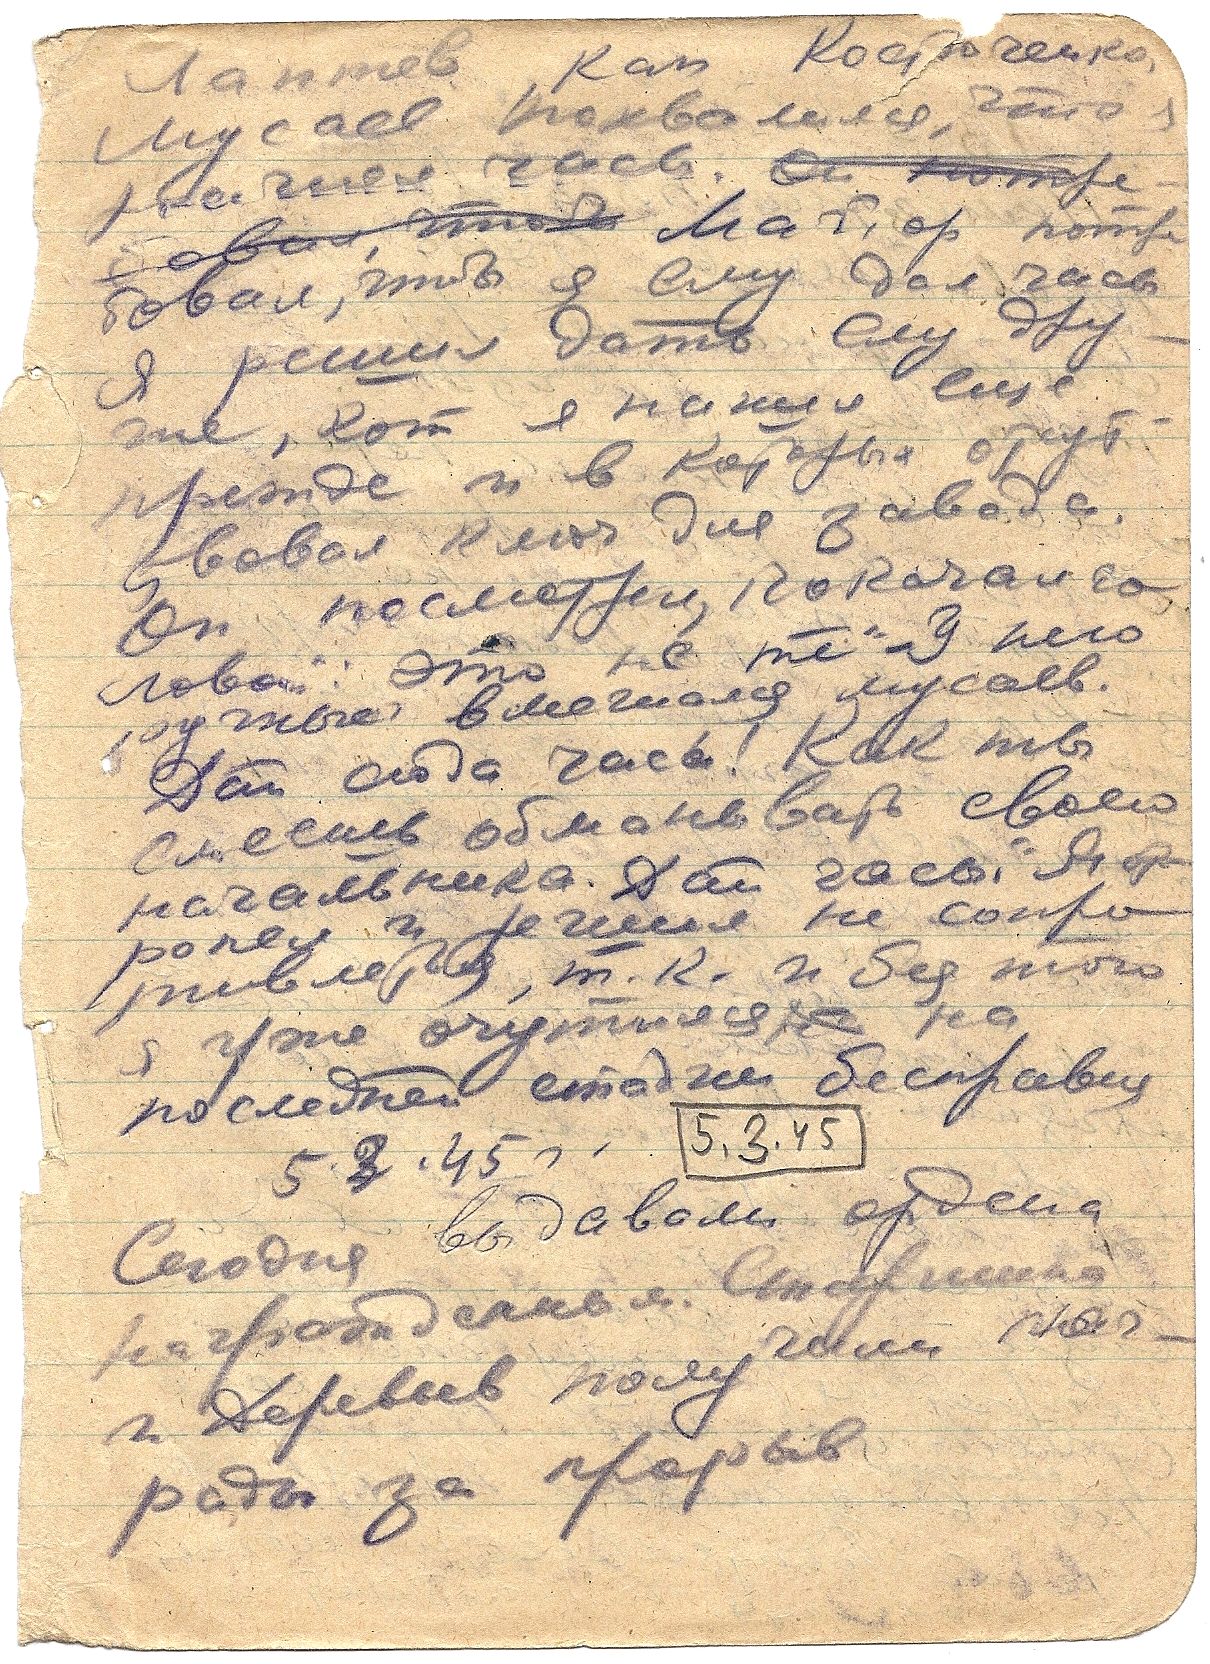 Лаптев, кап Костюченко,
Мусаев похвалился, что я
нашел часы. Он потре-
бовал, чтоб Майор потре
бовал, чтоб я ему дал часы
Я решил дать ему дру-
гие, кот я нашел еще
прежде и в которых отсут-
ствовал ключ для завода.
Он посмотрел, покачал го
ловой: "Это не те" "У него
ручные" вмешался Мусаев.
Дай сюда часы! Как ты
смеешь обманывать своего
начальника. Дай часы." Я
и решил не сопро
тивляться, т.к. и без того
я уже очутился на
последней стадии бесправия
5.3.45 г. 5.3.45
Сегодня выдавали ордена
награжденным. Старшина
и Деревьев получили наг-
рады за прорыв